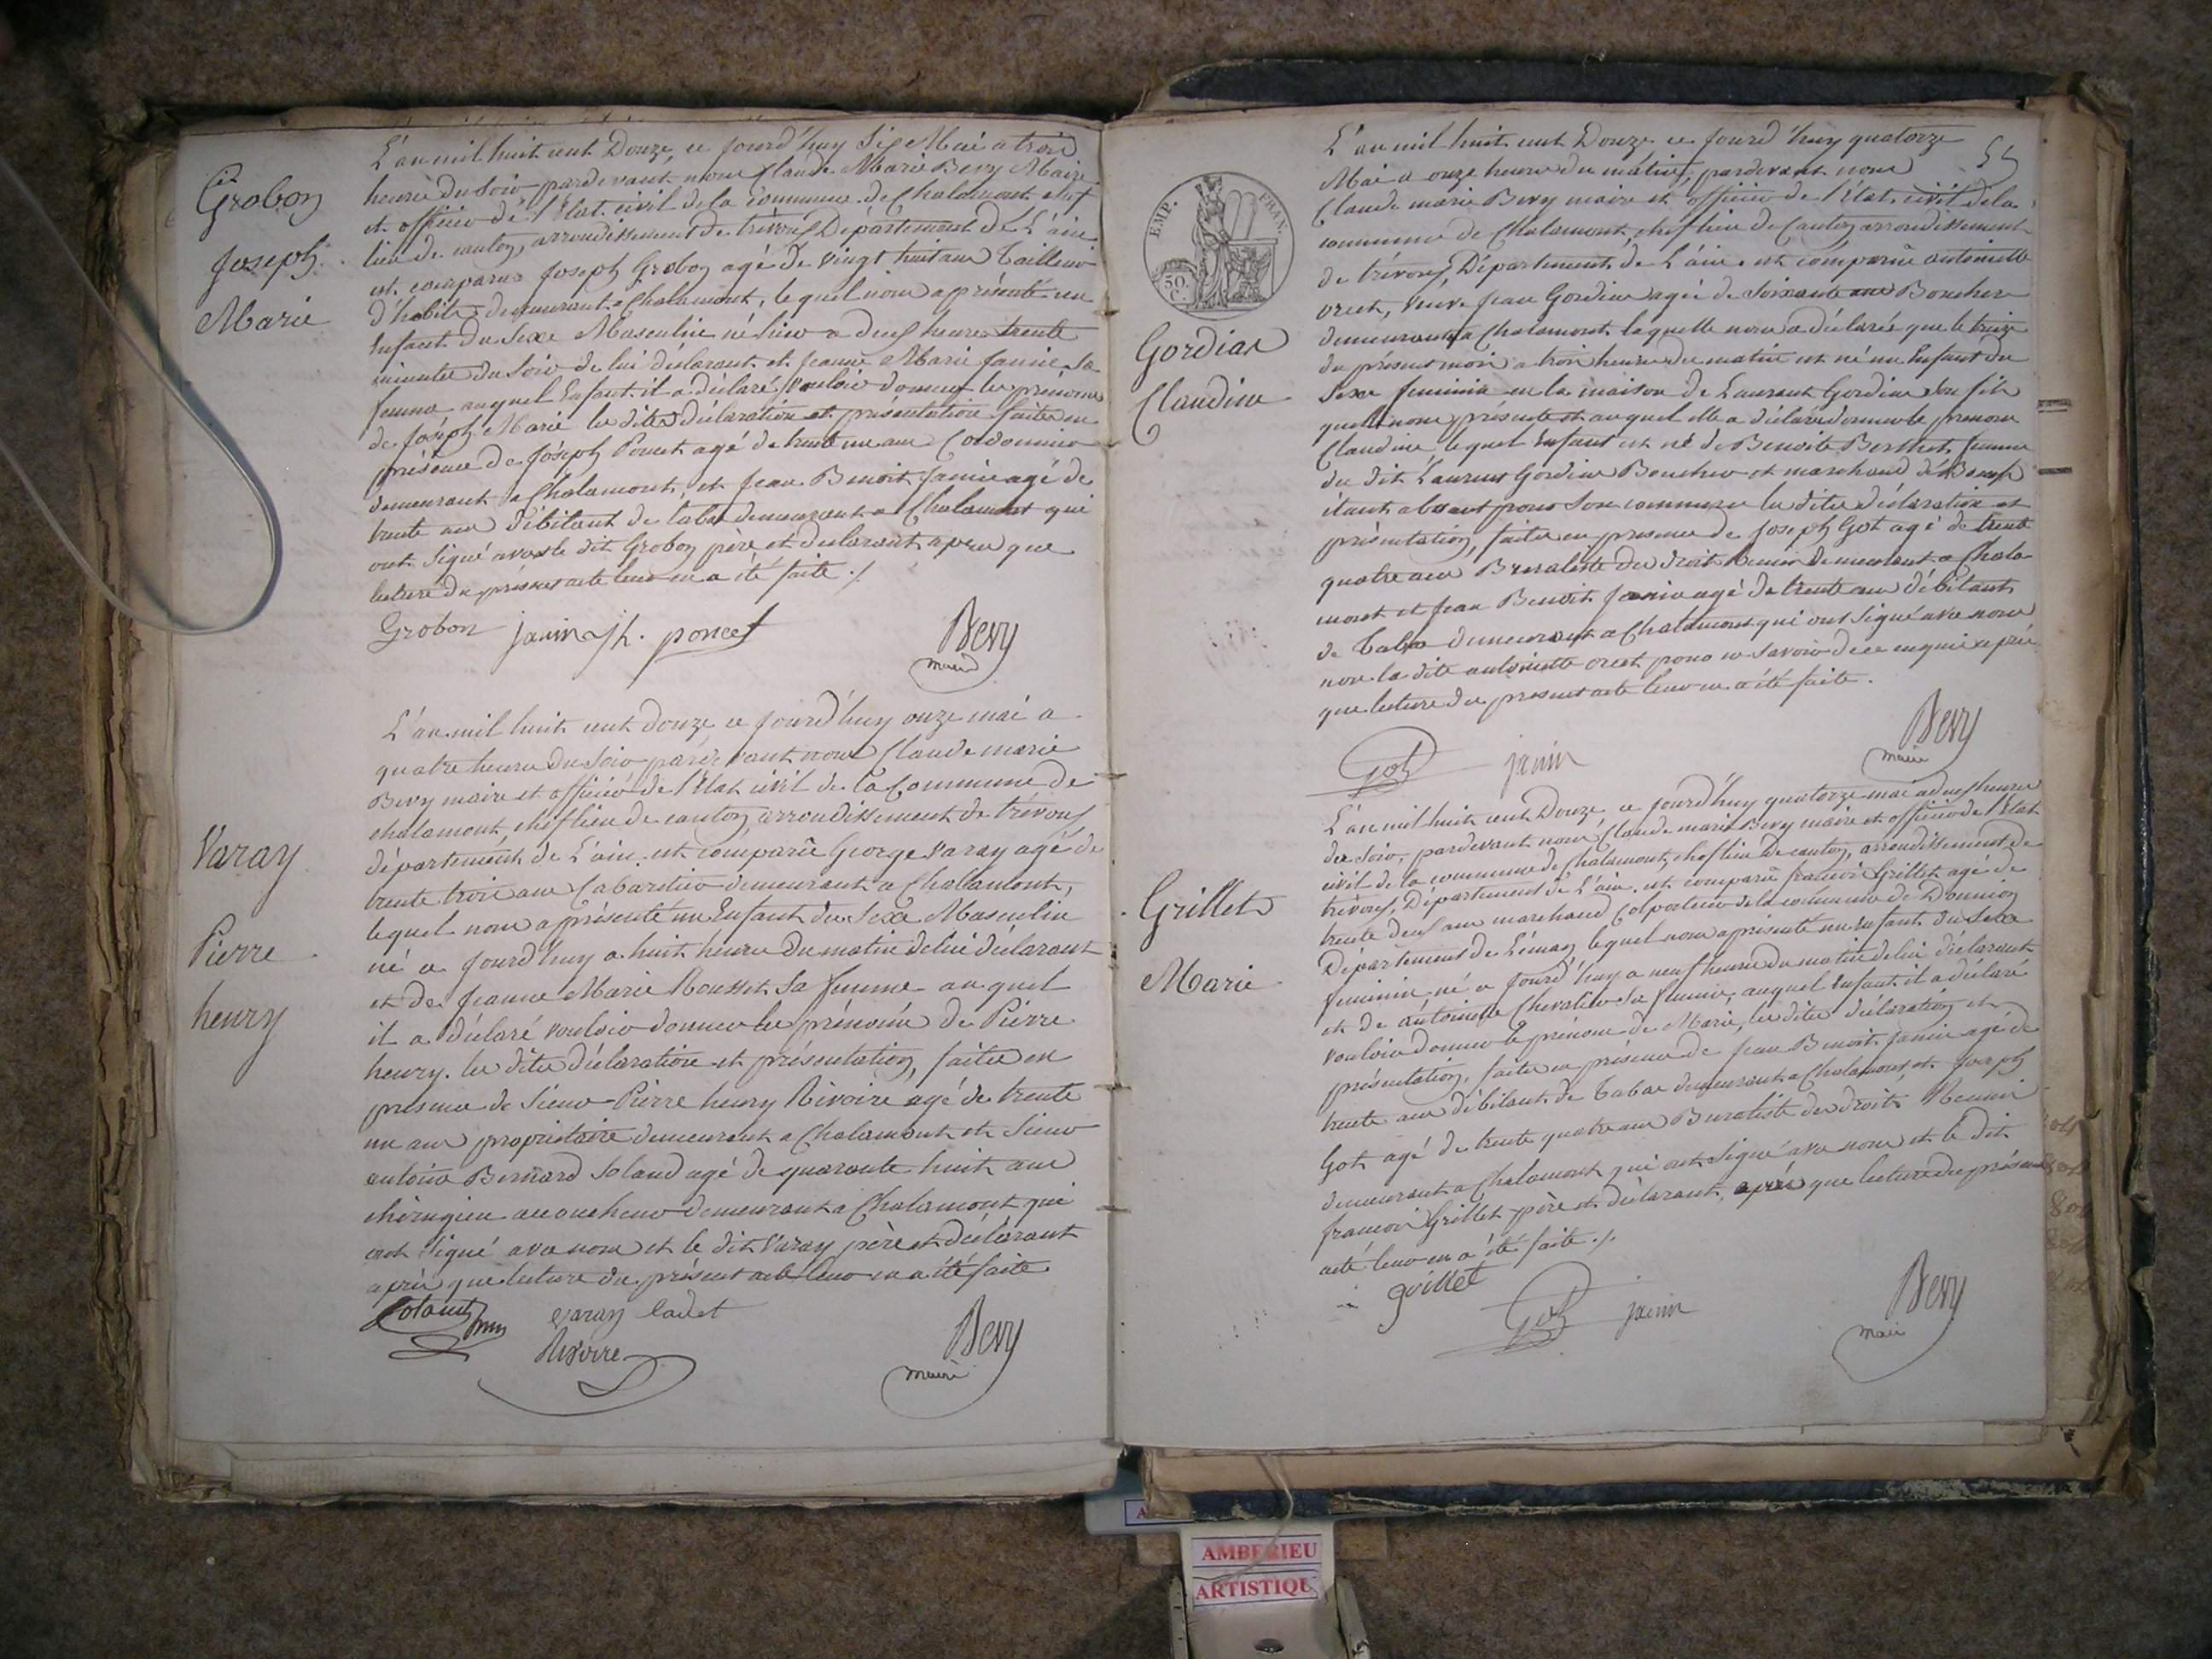 Grobon
Joseph
Marie
L'an mil huit cent Douze, ce jourd'huy Six Mai a trois
heures du Soir pardevant nous Claude Marie Bevy Maire
et officier de l'Etat civil de la commune de Chalamont chef
lieu de canton, arrondissement de trévoux Département de L'ain
est comparu Joseph Grobon agé de vingt huit ans Tailleur
d'habits demeurant a Chalamont, lequel nous a présenté un
Enfant du Sexe Masculin né hier a deux heures trente
minutes du Soir de lui déclarant et Jeanne Marie Janin, Sa
femme auquel Enfant il a déclaré vouloir donner les prenoms
de Joseph Marie les dites déclaration et présentation faites en
présence de Joseph Poncet agé de trente un ans Cordonnier
demeurant a Chalamont, et Jean Benoit Janin agé de
trente ans débitant de tabac demeurant a Chalamont qui
ont Signé avec le dit Grobon père et déclarant apres que
lecture du présent acte leur en a été faite ./.
Grobon janin jh. poncet Bevy
maire
Varay
Pierre
henry
L'an mil huit cent Douze ce jourd'huy onze mai a
quatre heures du Soir pardevant nous Claude marie
Bevy maire et officier de l'Etat civil de la Commune de
chalamont, chef lieu de canton, arrondissement de trévoux
département de L'ain est comparu George Varay agé de
trente trois ans Cabaretier demeurant a Chalamont,
lequel nous a présenté un Enfant du Sexe Masculin
né ce jourd'huy a huit heures du matin de lui déclarant
et de Jeanne Marie Rousset Sa femme auquel
il a déclaré vouloir donner les prénoms de Pierre
henry. les dites déclaration et présentation, faites en
presence de Sieur Pierre henry Rivoire agé de trente
un ans propriétaire demeurant a Chalamont et Sieur
antoine Bernard Soland agé de quarante huit ans
chirugien accoucheur demeurant a Chalamont qui
ont Signé avec nous et le dit Varay père et déclarant
après que lecture du présent acte leur en a été faite
varay Cadet
Rivoire Bevy
maire
EMP. FRAN.
50
C.
Gordian
Claudine
L'an mil huit cent Douze ce jourd'huy quatorze
Mai a onze heures du matin, pardevant nous
Claude marie Bevy maire et officier de l'Etat civil de la
commune de Chalamont, chef lieu de Canton arrondissement
de trévoux, Département de L'ain. est comparue antoinette
veuve Jean Gordian agée de Soixante ans Bouchere
demeurant a Chalamont laquelle nous a déclaré que le treize
du présent mois a trois heures du matin est né un Enfant du
Sexe feminin en la maison de Laurent Gordian Son fils
quelle nous presente et auquel elle a déclaré donner le prenom
Claudine lequel Enfant est né de Benoite Berthet femme
du dit Laurent Gordian Boucher et marchand de Boeufs
étant absent pour Son commerce les dites déclaration et
présentation, faites en presence de Joseph Got agé de trente
quatre ans Buraliste des droits Reunis demeurant a Chala-
mont et Jean Benoit Janin agé de trente ans débitant
de Tabac demeurant a Chalamont qui ont Signé avec nous
non la dite antoinette pour ne Savoir de ce enquise après
que lecture du present acte leur en a été faite.
Got janin Bevy
maire
Grillet
Marie
L'an mil huit cent Douze ce jourd'huy quatorze mai a deux heures
du Soir, pardevant nous Claude marie Bevy maire et officier de l'Etat
civil de la commune de Chalamont, chef lieu de canton, arrondissement de
trévoux, Département de L'ain. est comparu francois Grillet agé de
trente deux ans marchand Colporteur de la commune de
Département de Léman lequel nous a présenté un enfant du Sexe
feminin, né ce jourd'huy a neuf heures du matin de lui déclarant
et de antoinette Chevalier Sa femme, auquel Enfant il a déclaré
vouloir donner le prénom de Marie, les dites déclaration et
présentation, faites en présence de Jean Benoit Janin agé de
trente ans débitant de Tabac demeurant a Chalamont, et Joseph
Got agé de trente quatre ans Buraliste des droits Reunis
demeurant a Chalamont qui ont Signé avec nous et le dit
francois Grillet père et déclarant, après que lecture du présent
acte leur en a été faite ./.
grillet Got janin Bevy
maire
AMBERIEU
ARTISTIQUE